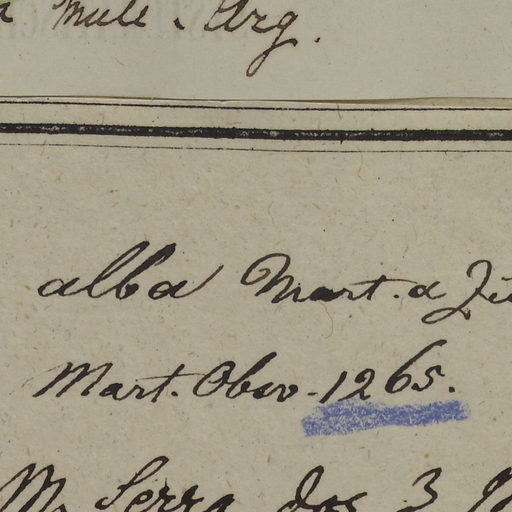 Mull. Arg.
alba Mart. a
Mart. Obsv. 1265.
Serra dos 3